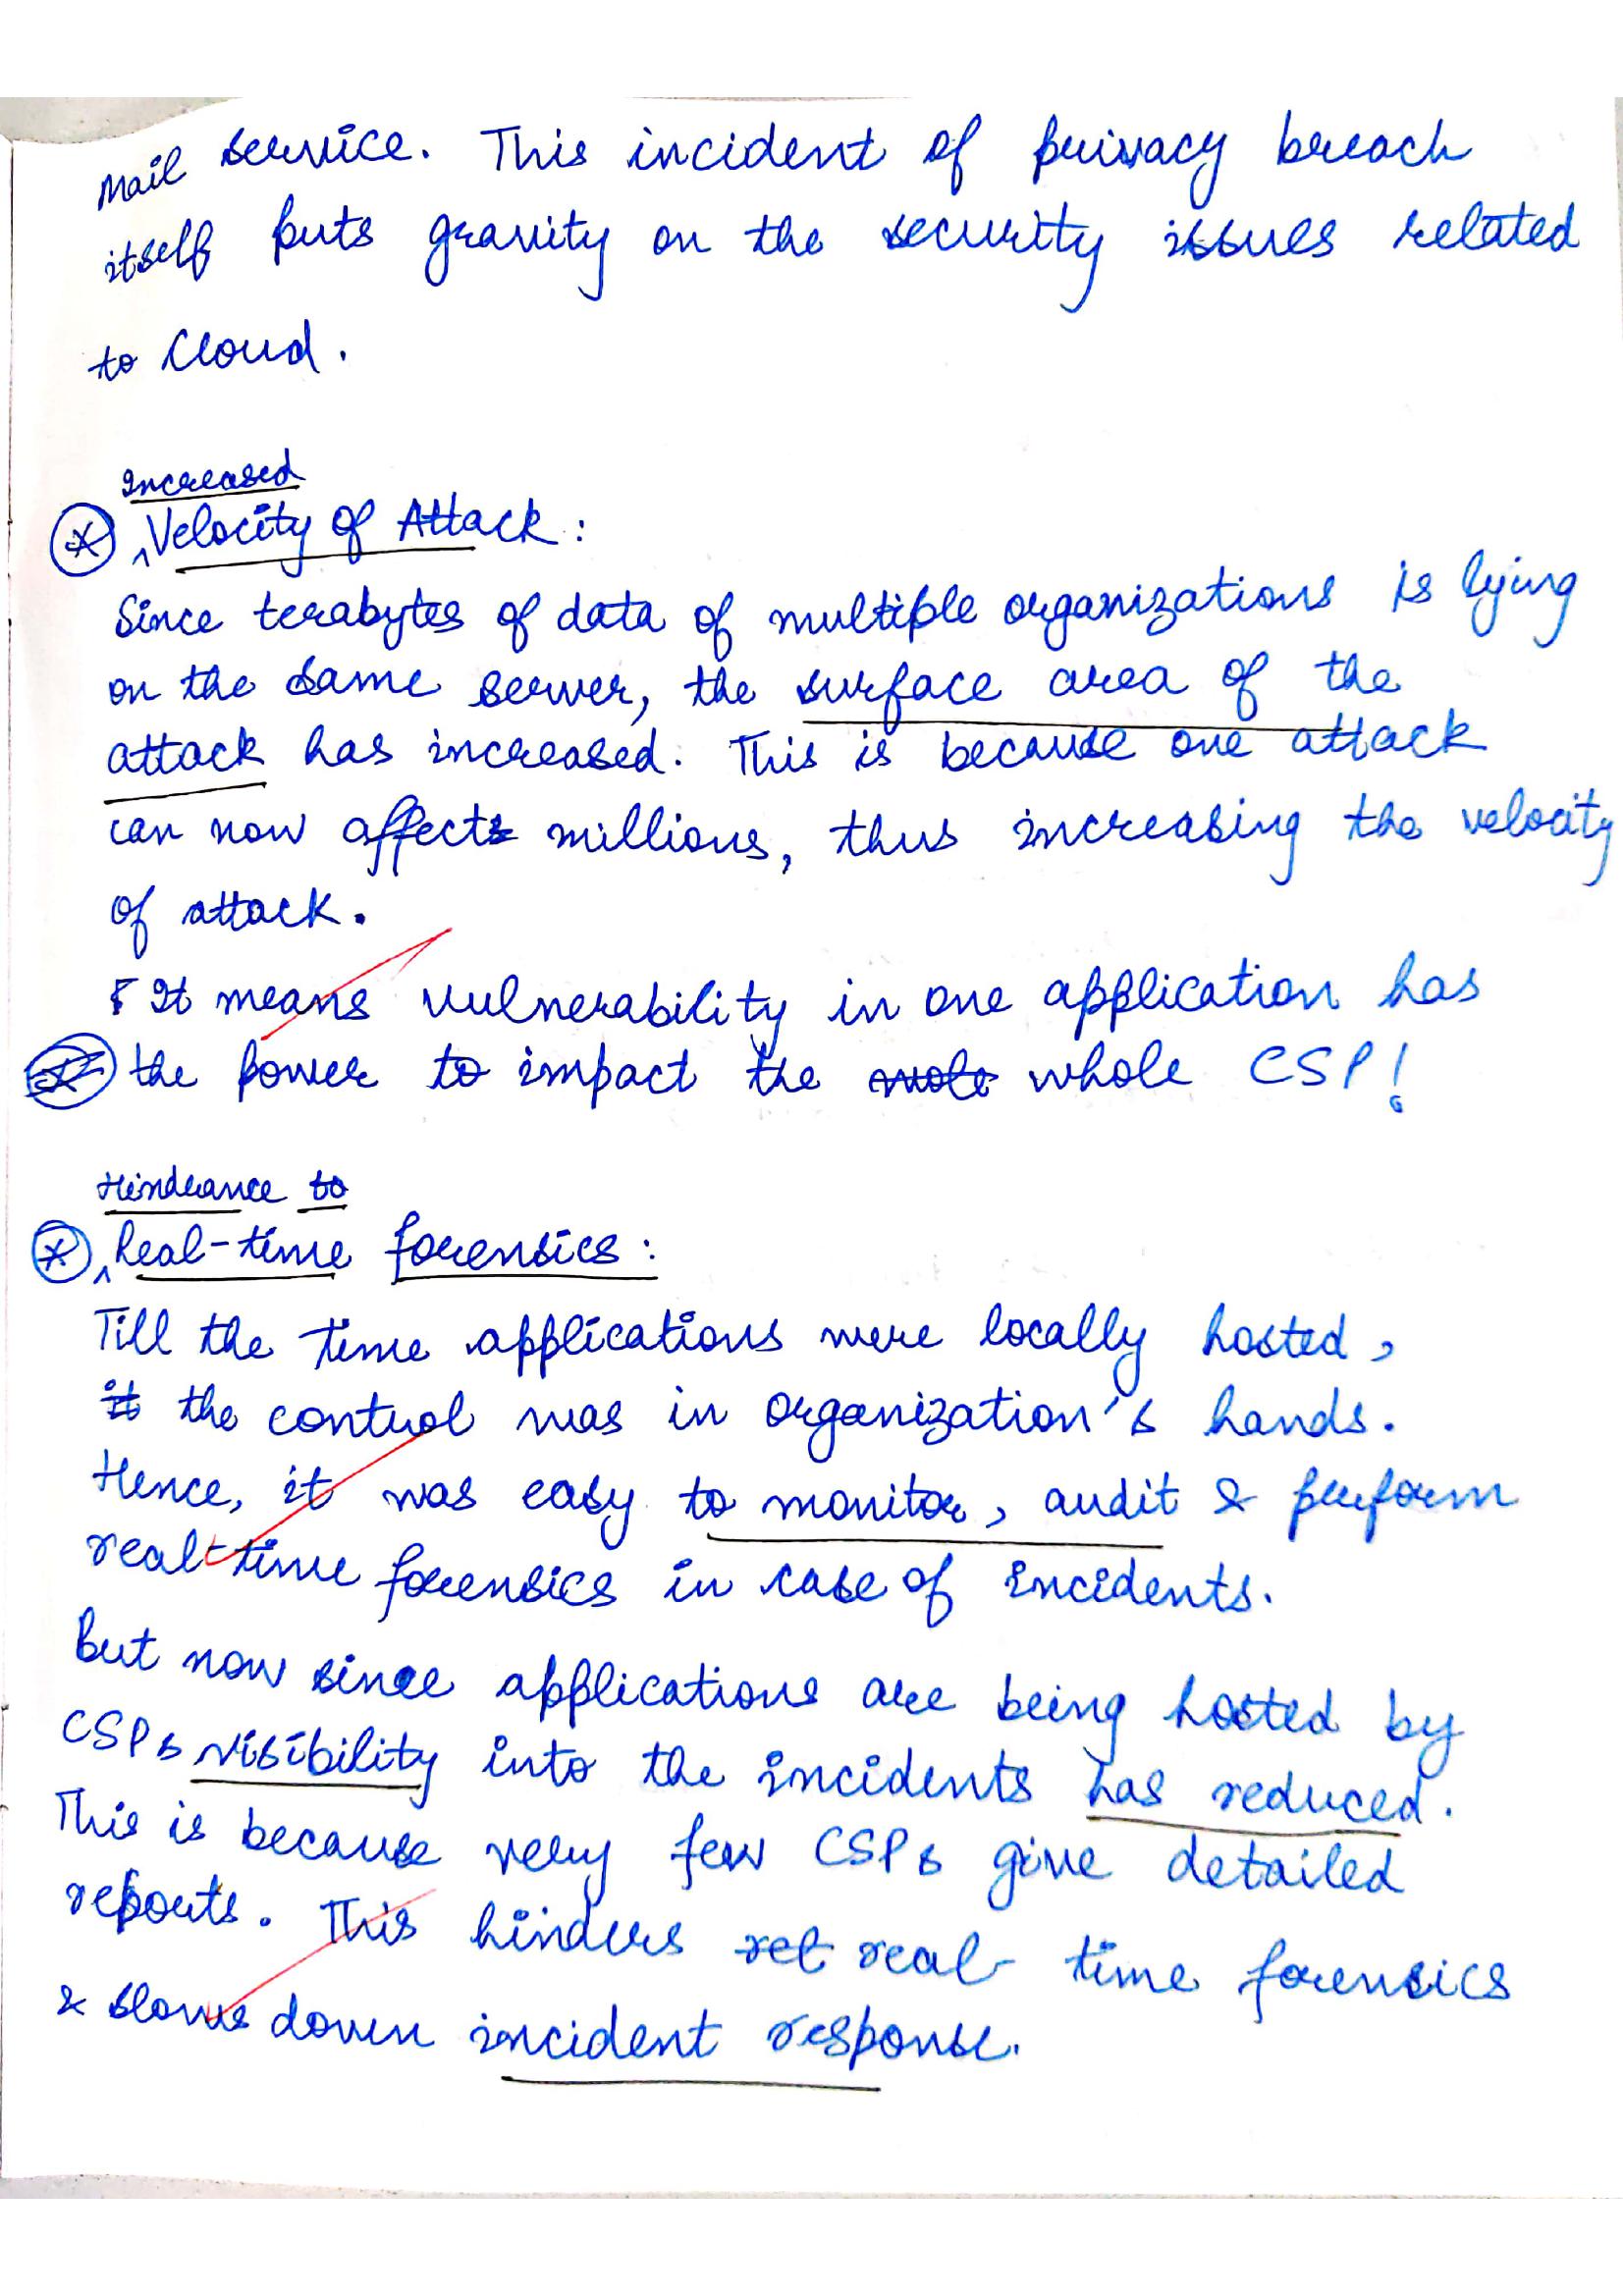 Mail service. This incident of privacy breach
itself puts gravity on the security issues related
to Cloud.
Increased
^ Velocity of Attack:
Since terabytes of data of multiple organizations is lying
on the same server, the surface area of the
attack has increased. This is because one attack
can now affect millions, thus increasing the velocity
of attack.
It means vulnerability in one application has
the power to impact the whole CSP!
Hinderance to
^ Real-time forensics:
Till the time applications were locally hosted,
the control was in organization's hands.
Hence, it was easy to monitor, audit & perform
real-time forensics in case of incidents.
But now since applications are being hosted by
CSPs visibility into the incidents has reduced.
This is because very few CSPs give detailed
reports. This hinders real-time forensics
& slows down incident response.